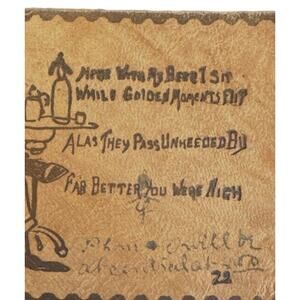 HERE WITH MY BEER I SIT
WHILE GOLDEN MOMENTS FLIT
ALAS THEY PASS UNHEEDED BY
FAR BETTER YOU WERE NIGH
will
at
22